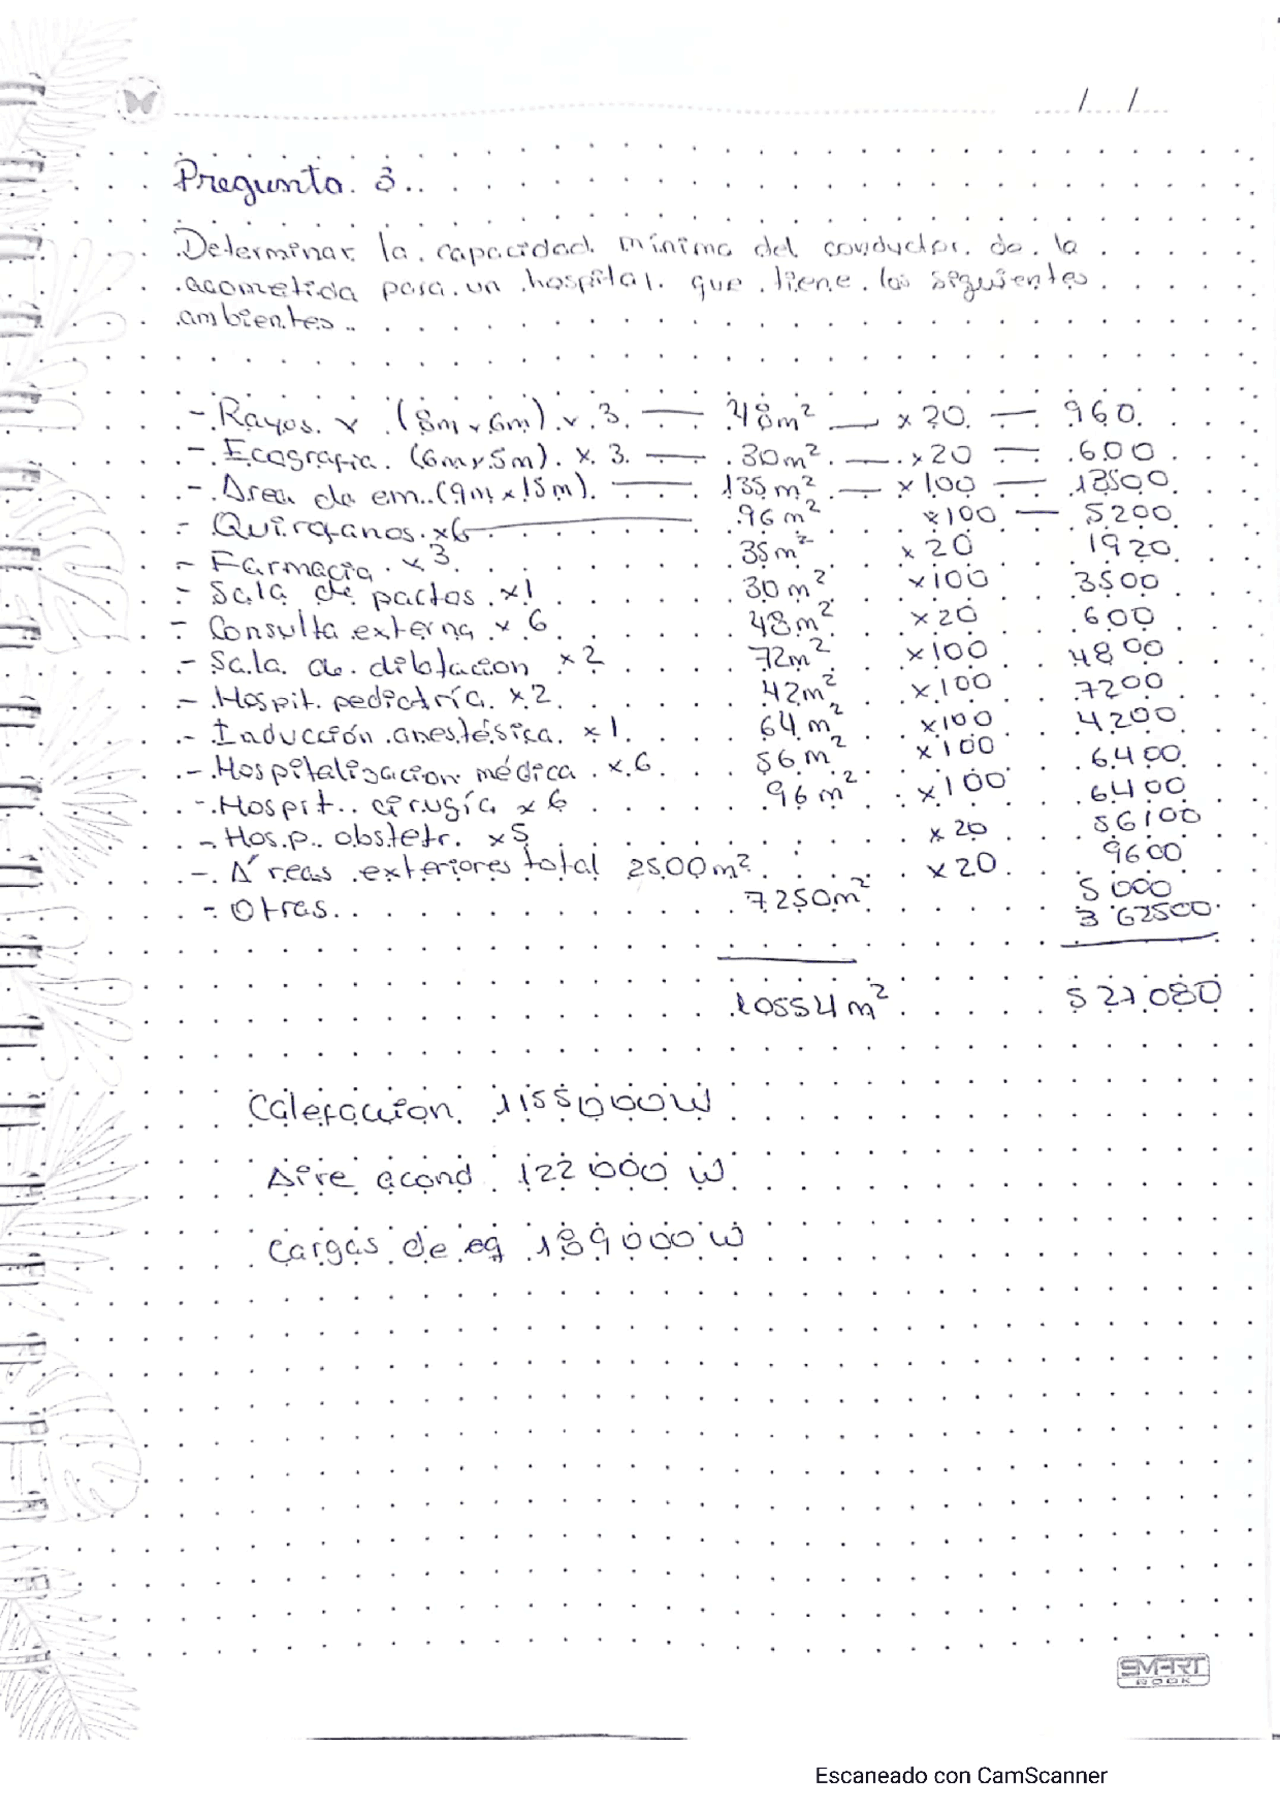 / /
Pregunta 3.
Determinar la capacidad mínima del conductor de la
acometida para un hospital que tiene los siguientes
ambientes.
- Rayos x (8m x 6m) x 3 — 48m² — x 20 — 960
- Ecografia (6m x 5m) x 3 — 30m² — x 20 — 600
- Area de em. (9m x 15m) — 135m² — x 100 — 13500
- Quirofanos x6 — 96m² x100 — 5200
- Farmacia x 3 35m² x 20 1920
- Sala de partos x1 30m² x100 3500
- Consulta externa x 6 48m² x 20 600
- Sala de dilatacion x 2 72m² x100 4800
- Hospit. pediatría x 2 42m² x100 7200
- Inducción anestésica x 1 64m² x100 4200
- Hospitalizacion médica x 6 56m² x100 6400
- Hospit. cirugía x 6 96m² x100 6400
- Hosp. obstetr. x 5 x 20 56100
- Áreas exteriores total 2500m² x 20 9600
- Otras 7250m² 5000
362500
10554m² 527080
Calefaccion 1155000W
Aire acond 122000 W
Cargas de eq 189000 W
SMART
BOOK
Escaneado con CamScanner